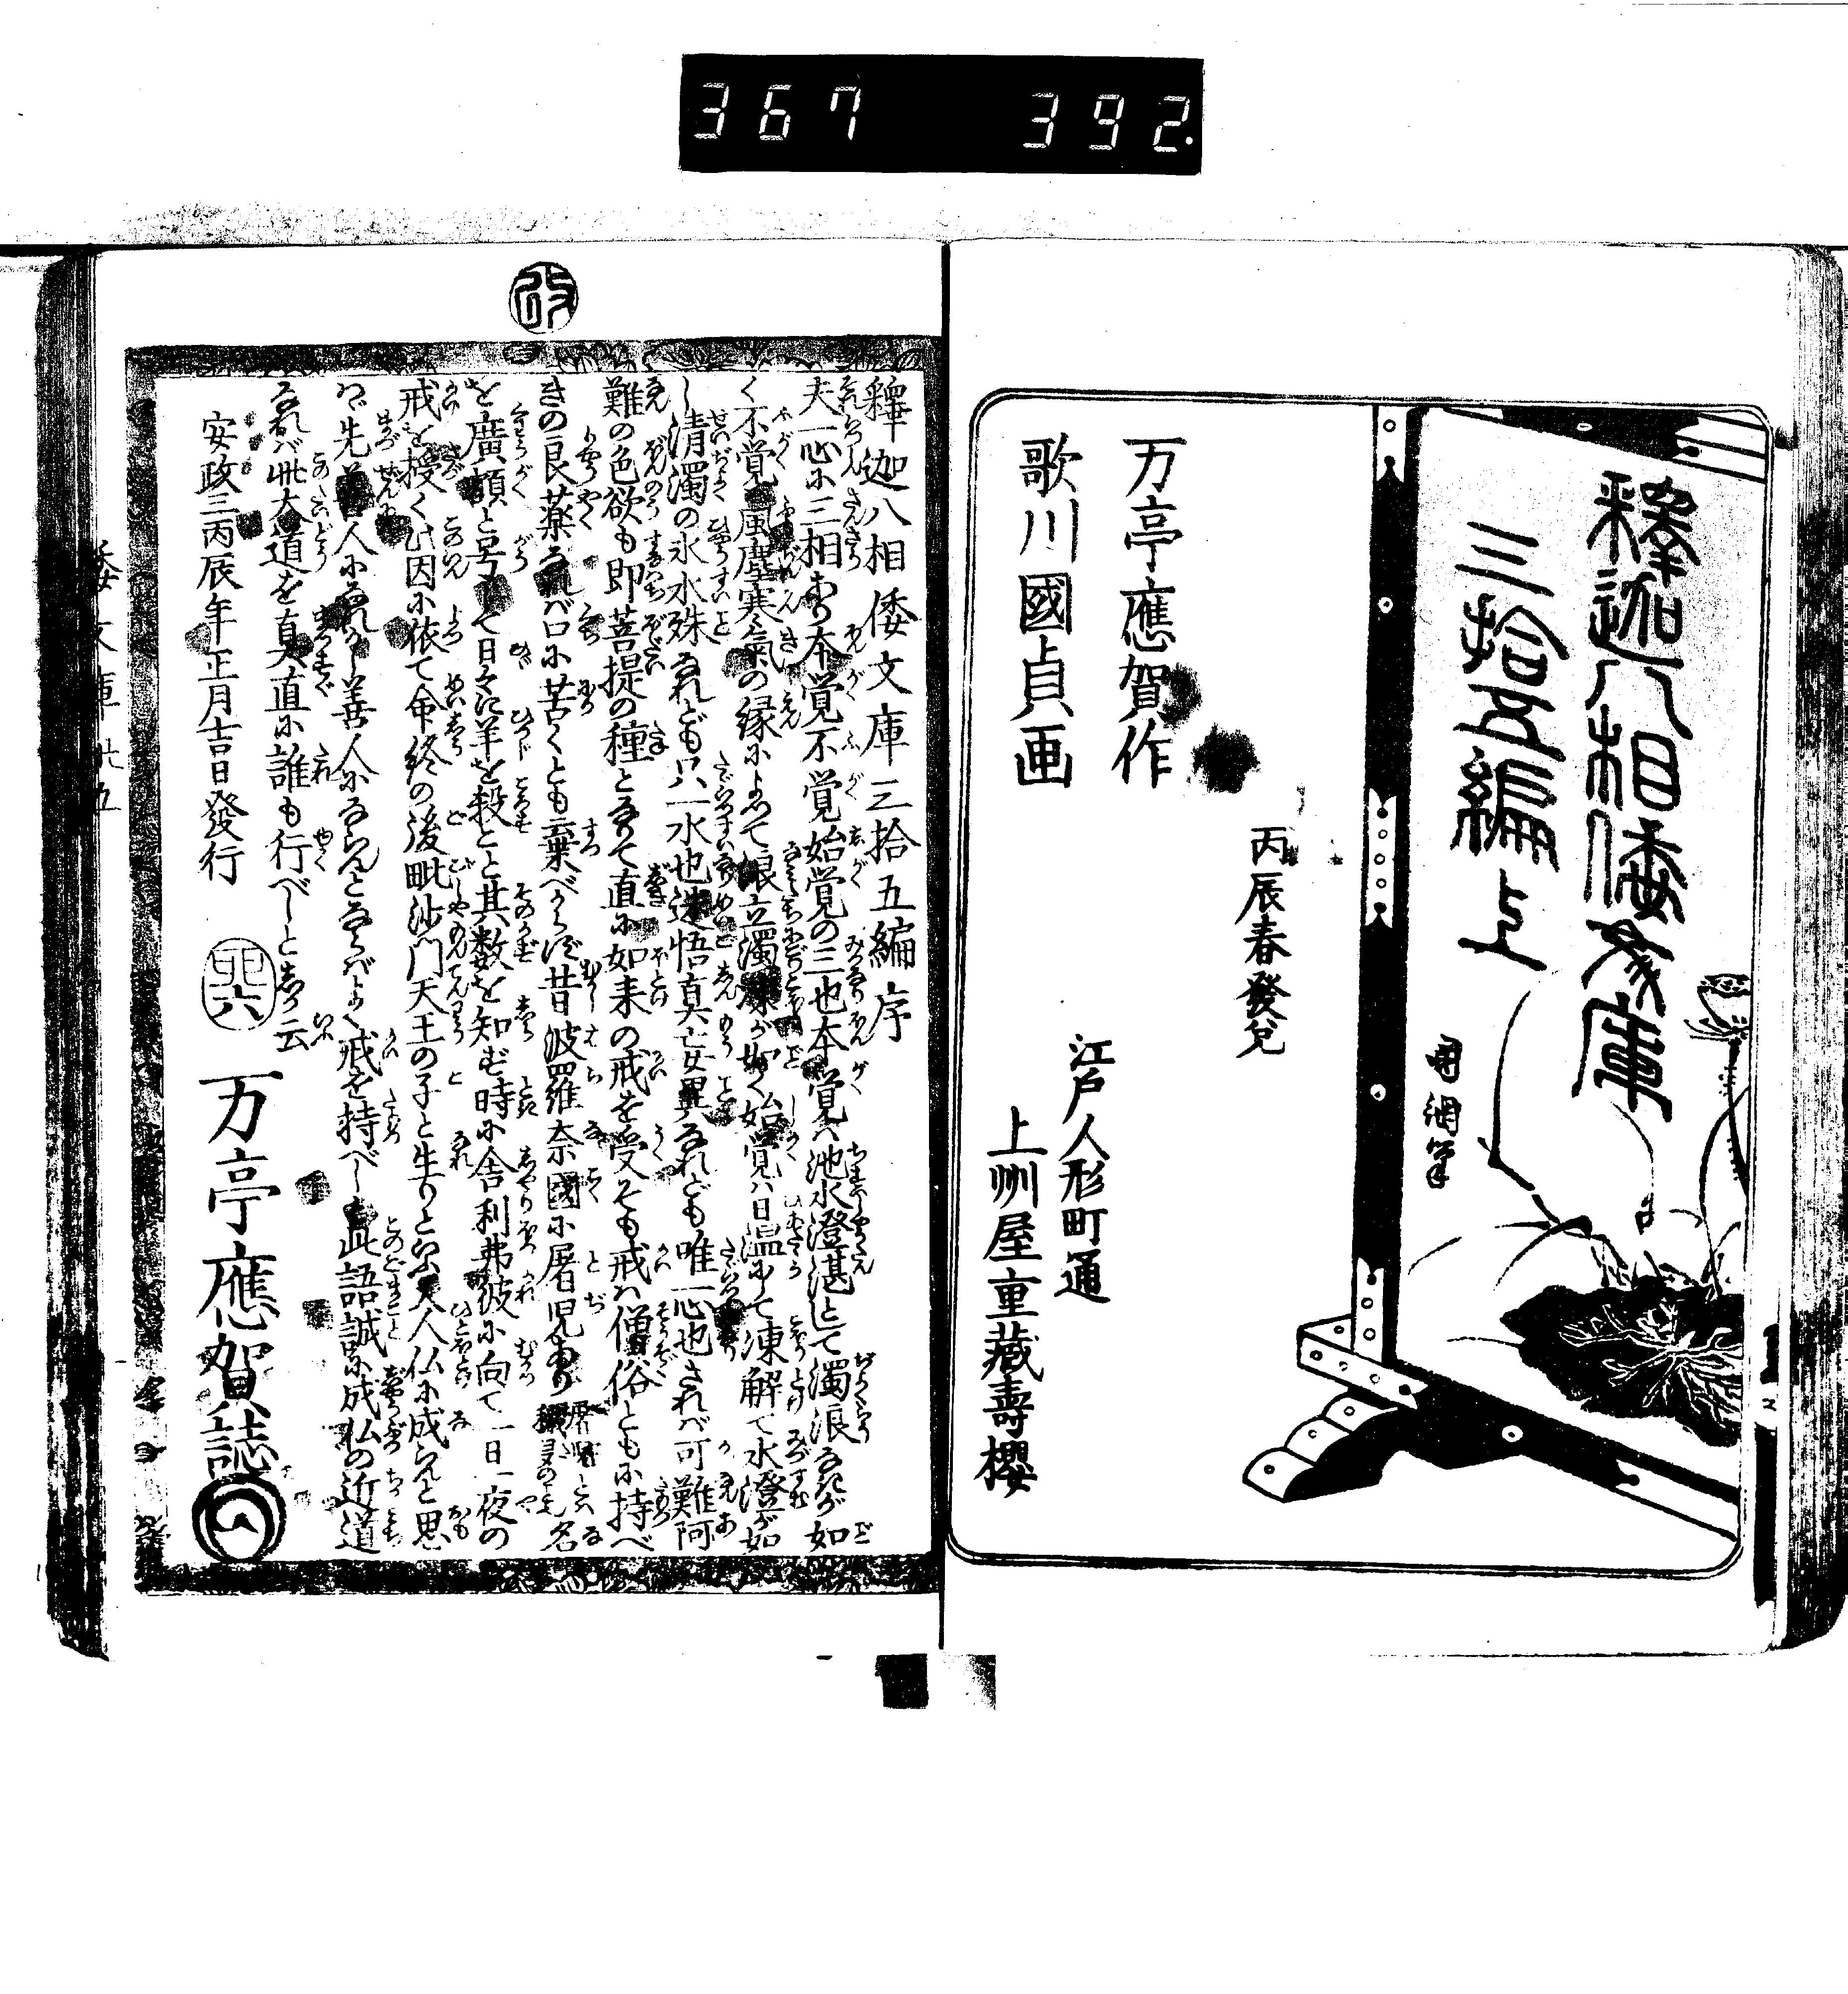 367 392.
釋迦八相倭文庫
三拾五編上
国綱筆
丙辰春發兌
万亭應賀作
歌川國貞画
江戸人形町通
上州屋重藏壽櫻
改
釋迦八相倭文庫三拾五編序
夫一心に三相あり本覚不覚始覚の三也本覚ハ池水澄湛として濁浪なきが如
く不覚ハ風塵寒氣の縁によつて浪立濁凍が如く始覚ハ日温にして凍解て水澄が如
し清濁の氷水殊なれども只一水也迷悟真妄異なれども唯一心也されバ可難阿
難の色欲も即菩提の種となりて直に如来の戒を受そも戒ハ僧俗ともに持べ
きの良薬なれバ口に苦くとも棄べからず昔波羅奈國に屠児あり名
を廣額と号して日々に羊を殺こと其数を知ず時に舎利弗彼に向て一日一夜の
戒を授く此因に依て命終の後毗沙門天王の子と生りといふ夫人仏に成らんと思
はゞ先善人になれかし善人にならんとならバよく戒を持べし此語誠に成仏の近道
なれバ此大道を真直に誰も行べしとしか云
安政三丙辰年正月吉日發行
万亭應賀誌
倭文庫 卅五